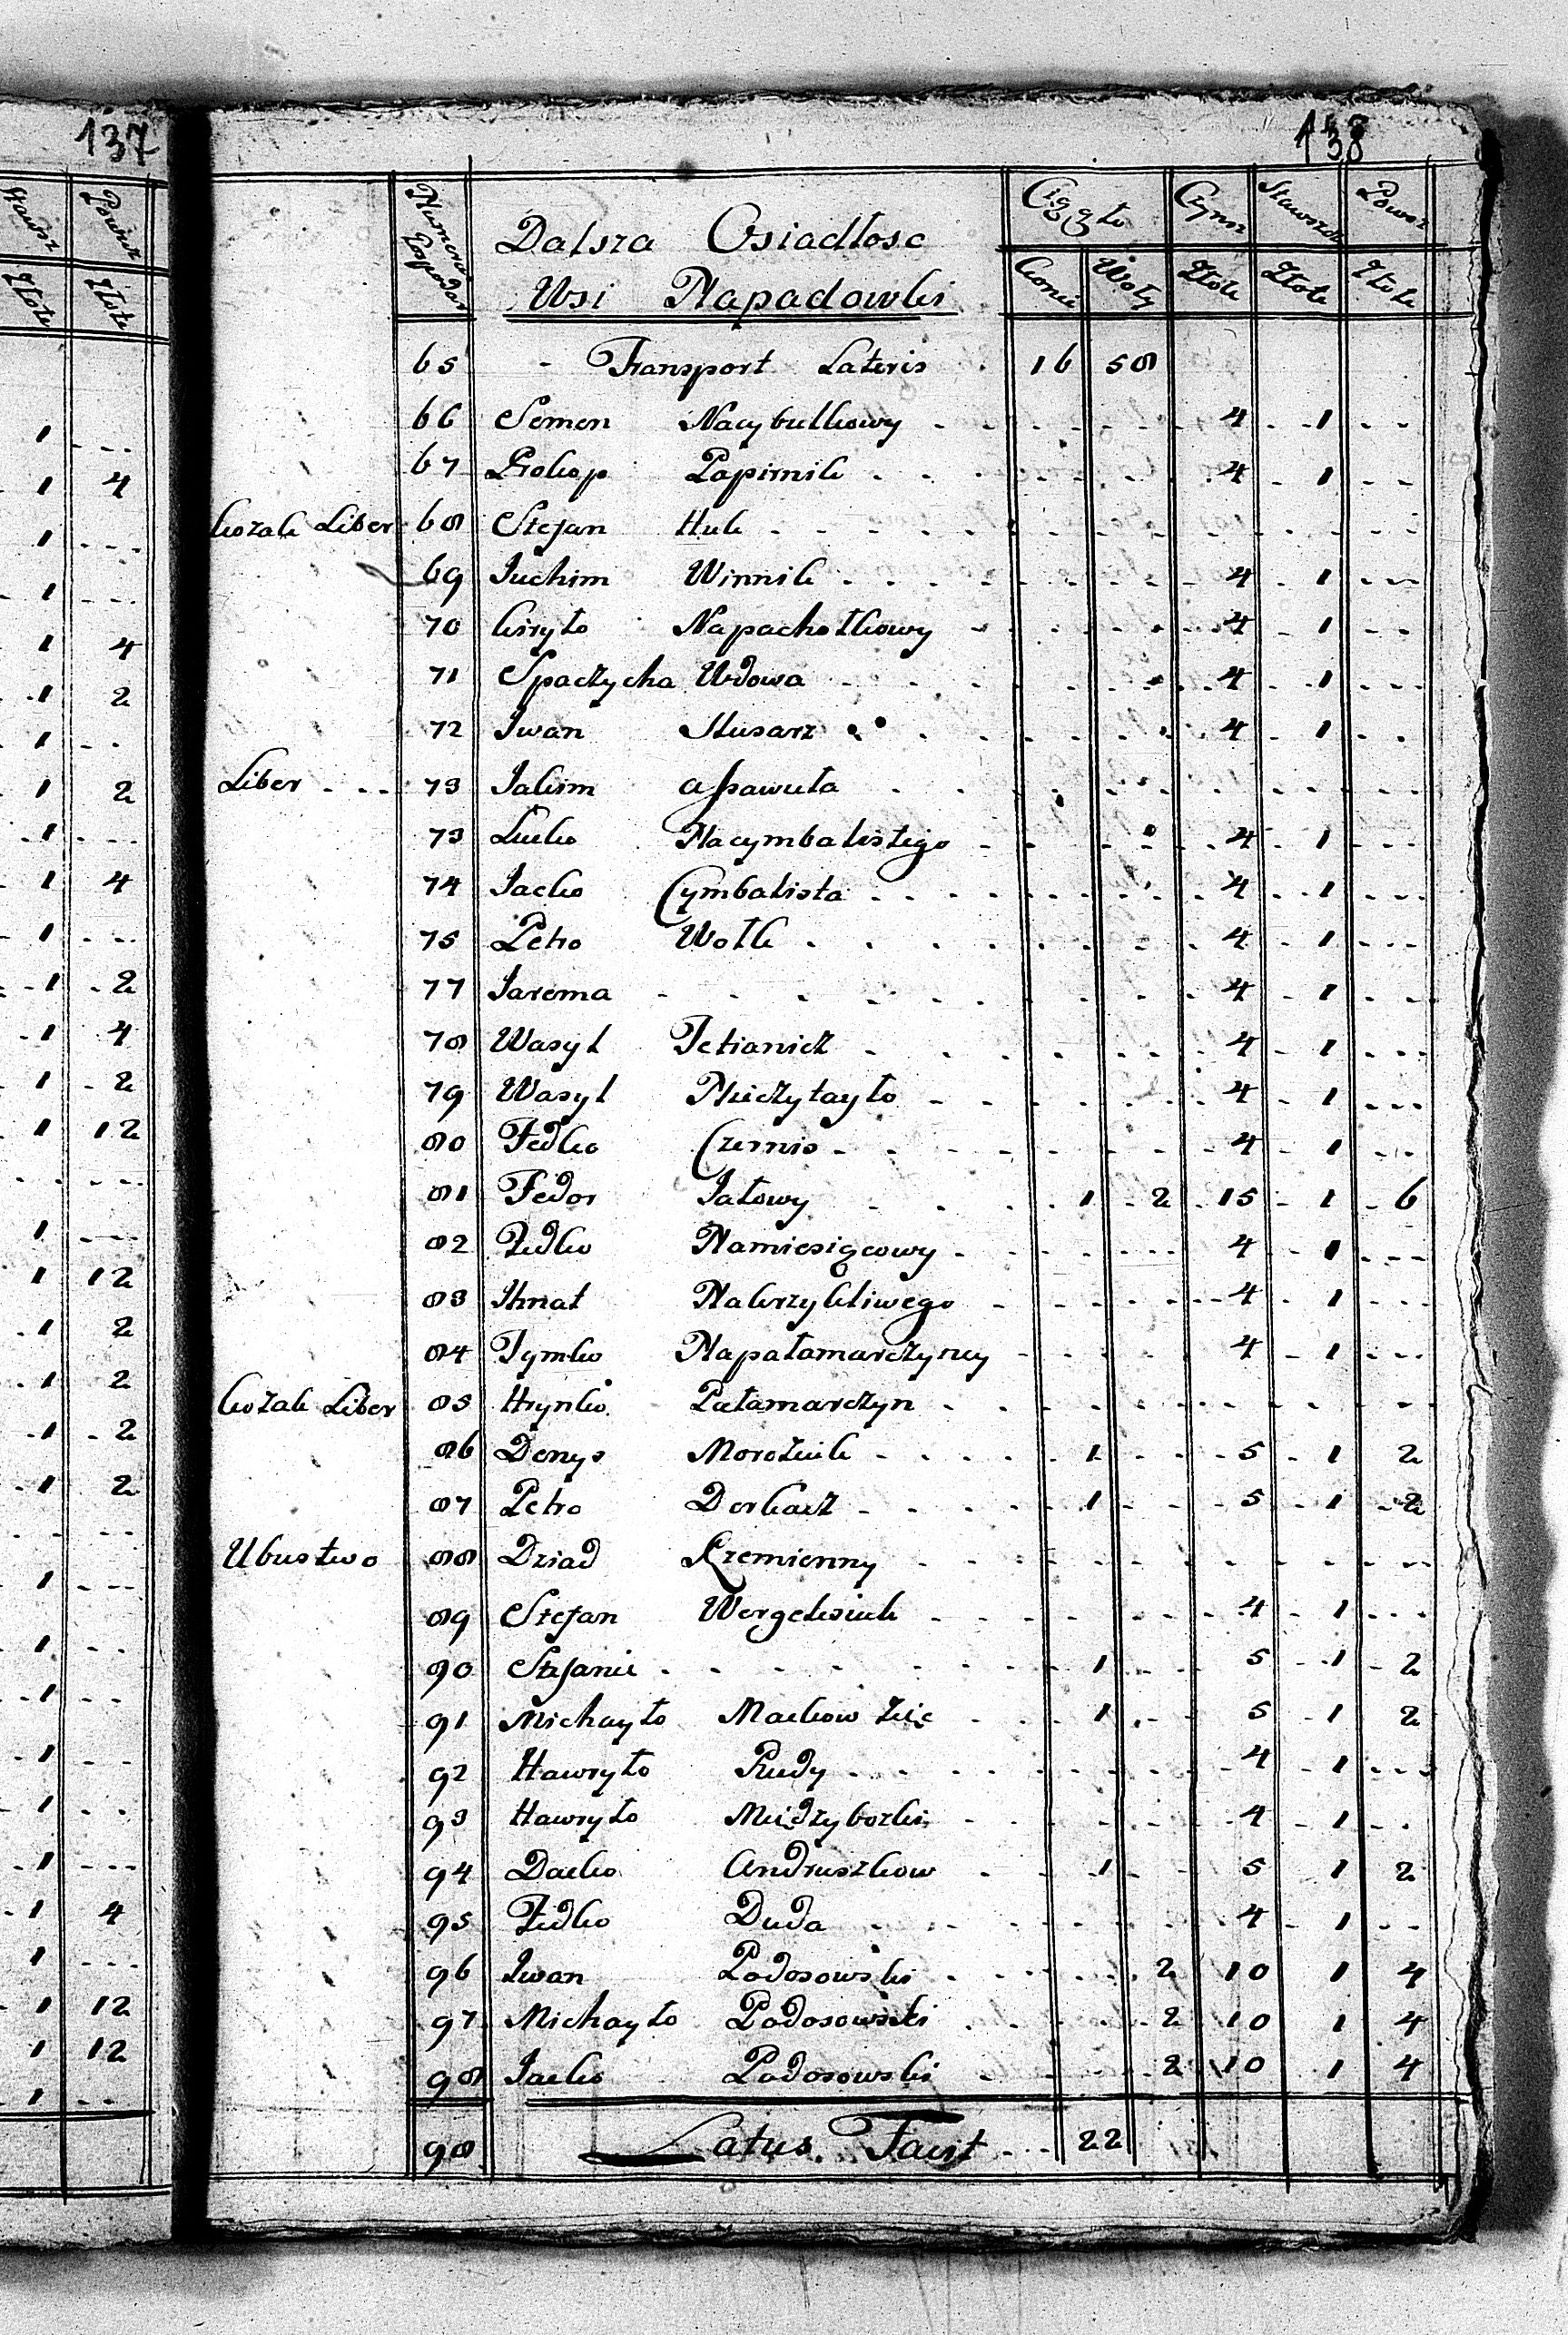 137
Powsz
Złote Złote
1 - - -
1 4
1 - - -
1 - - -
1 4
1 2
1 - - -
1 2
1 - - -
1 4
1 - - -
1 2
1 4
1 2
1 12
- - -
1 - - -
1 12
1 2
1 2
1 2
1 2
- - -
1 - - -
1 - - -
1 - - -
1 - - -
1 - - -
1 - - -
1 4
1 - - -
1 12
1 12
1 - - -
138
Numera Gospodar Dalsza Osiadłosc Ciągło Czynsz
Wsi Napadowki Konie Woły Złote Złote Złote
65 - Transport Lateris 16 58
66 Semen Nacybulkowy 4 1
67 Prokop Papirnik 4 1
Kozak Liber 68 Stefan Huk
69 Juchim Winnik 4 1
70 Kiryło Napachołkowy 4 1
71 Spaczycha Wdowa 4 1
72 Iwan Slusarz 4 1
Liber 73 Jakim Assawuła
73 Lucko Nacymbalistego 4 1
74 Jacko Cymbalista 4 1
75 Petro Wołk 4 1
77 Jarema 4 1
78 Wasyl Tetianicz 4 1
79 Wasyl Nieczytayło 4 1
80 Fedko Czernis 4 1
81 Fedor Jałowy 1 2 15 1 6
82 Fedko Namiesiącowy 4 1
83 Ihnat Nakrzykliwego 4 1
84 Tymko Napałamarczyncy 4 1
Kozak Liber 85 Hrynko Pałamarczyn
86 Denys Morozuik 1 5 1 2
87 Petro Derkacz 1 5 1 2
Ubustwo 88 Dziad Krzemienny
89 Stefan Wergelesiuk 4 1
90 Stefanie 1 5 1 2
91 Michayło Mackow Zięc 1 5 1 2
92 Hawryło Rudy 4 1
93 Hawryło Międzybozki 4 1
94 Dacko Andruszkow 1 5 1 2
95 Fedko Duda 4 1
96 Iwan Podosowski 2 10 1 4
97 Michayło Podosowski 2 10 1 4
98 Jacko Podosowski 2 10 1 4
98 Latus Facit 22